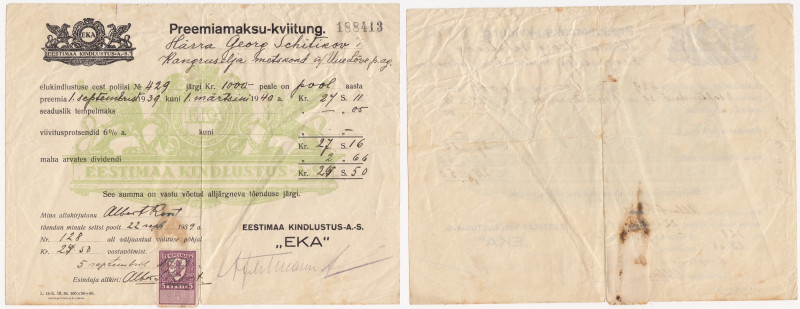 EKA
EESTIMAA KINDLUSTUS-A.-S.
Preemiamaksu-kviitung. 188413
Härra Georg Schitikov
Kangruselja metskond
elukindlustuse eest poliisi № 429 järgi Kr. 1000.- peale on pool aasta
preemia 1. septembrist 1939 kuni 1. märtsini 1940 a. Kr. 27 S. 11
seaduslik tempelmaks " — " 05
viivitusprotsendid 6% a. kuni " — " —
Kr. 27 S. 16
maha arvates dividendi " 2 " 66
Kr. 24 S. 50
EESTIMAA KINDLUSTUS-A.-S.
See summa on vastu võetud alljärgneva tõenduse järgi.
Mina allakirjutanu Albert
tõendan minule seltsi poolt 22 1939 a.
Nr. 128 all väljaantud volituse põhjal
Kr. 24.50 vastuvõtmist.
5 septembril
Esindaja allkiri:
EESTIMAA KINDLUSTUS-A.-S.
„EKA"
5 5